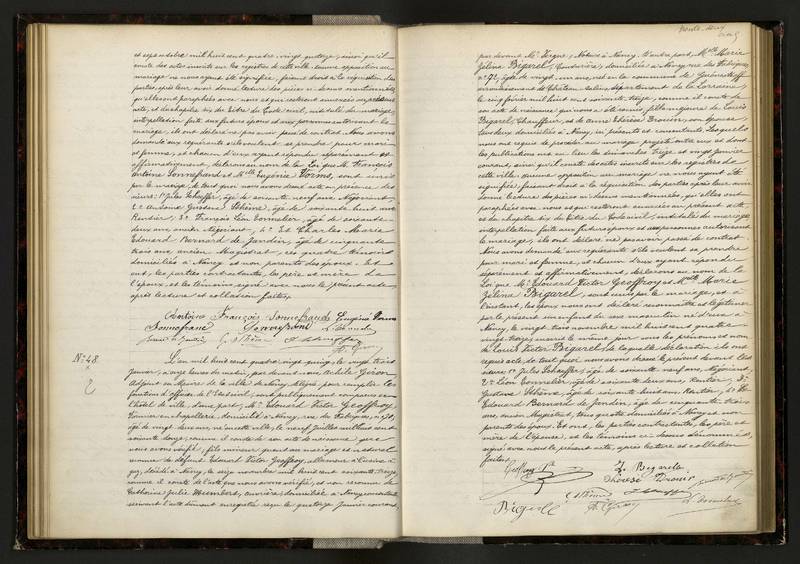 et septembre mil huit cent quatre-vingt quatorze, ainsi qu'il
conste des actes inscrits sur les registres de cette ville. aucune opposition au
mariage ne nous ayant été signifiée, faisant droit à la réquisition des
parties, après leur avoir donné lecture des pièces ci-dessus mentionnées,
qu'elles ont paraphées avec nous et qui resteront annexées au présent
acte, et du chapitre six du titre du Code civil, intitulé du mariage,
interpellation faite aux futurs époux et aux personnes autorisant le
mariage, ils ont déclaré ne pas avoir passé de contrat. Nous avons
demandé aux requérants s'ils veulent se prendre pour mari
et femme, et chacun d'eux ayant répondu séparément et
affirmativement, déclarons au nom de la Loi que Mr François
Antoine Sonnefraud et Melle Eugénie Vorms, sont unis
par le mariage, de tout quoi nous avons dressé acte en présence des
sieurs: 1° Jules Schaeffer, âgé de soixante neuf ans, Négociant,
2° Antoine Gustave Sthème, âgé de soixante huit ans
Rentier, 3° François Léon Connelier, âgé de soixante
deux ans, ancien Négociant, 4° Et Charles Marie
Edouard Bernard de Jandin, âgé de cinquante
trois ans, ancien Magistrat, ces quatre témoins
domiciliés à Nancy et non parents des époux. Et
ont, les parties contractantes, les père et mère de
l'épouse, et les témoins, signé avec nous le présent acte
après lecture et collation faites.
Antoine François Sonnefraud Eugénie Vorms
N° 48
L'an mil huit cent quatre vingt quinze, le vingt trois
janvier, à onze heures du matin, par devant nous Achille Giron
Adjoint au Maire de la ville de Nancy délégué pour remplir les
fonctions d'officier de l'État civil, sont publiquement comparus en
l'hôtel de ville, d'une part, Mr Edouard Victor Geoffroy
Ouvrier en chapellerie, domicilié à Nancy, rue des Fabriques, n° 71,
âgé de vingt deux ans, né en cette ville, le neuf juillet mil huit cent
soixante douze, comme il conste de son acte de naissance que
nous avons vérifié, fils majeur quant au mariage et naturel
reconnu de défunt Edouard Victor Geoffroy, allumeur à l'usine à
gaz, décédé à Nancy, le onze novembre mil huit cent soixante treize,
comme il conste de l'acte que nous avons vérifié, et non reconnu de
Catherine Julie Humbert, ouvrière, domiciliée à Nancy, consentante
suivant l'acte dûment enregistré reçu le quatorze janvier courant,
par devant Me Vergne, Notaire à Nancy. D'autre part, Melle Marie
Zélina Bigarel, Couturière, domiciliée à Nancy, rue des Fabriques,
n° 71, âgée de vingt un ans, née en la commune de
arrondissement de Château-Salins, département de la Lorraine,
le cinq février mil huit cent soixante treize, comme il conste de
son acte de naissance qui nous a été remis, fille majeure de Louis
Bigarel, Chauffeur, et de dame Thérèse Drouin, son épouse,
tous deux domiciliés à Nancy, ici présents et consentants. Lesquels
nous ont requis de procéder au mariage projeté entre eux et dont
les publications ont eu lieu les dimanches treize et vingt janvier
courant, ainsi qu'il conste des actes inscrits sur les registres de
cette ville. aucune opposition au mariage ne nous ayant été
signifiée, faisant droit à la réquisition des parties après leur avoir
donné lecture des pièces ci-dessus mentionnées, qu'elles ont
paraphées avec nous et qui resteront annexées au présent acte,
et du chapitre six du titre du Code civil, intitulé du mariage,
interpellation faite aux futurs époux et aux personnes autorisant
le mariage, ils ont déclaré ne pas avoir passé de contrat.
Nous avons demandé aux requérants s'ils veulent se prendre
pour mari et femme, et chacun d'eux ayant répondu
séparément et affirmativement, déclarons au nom de la
Loi que Mr Edouard Victor Geoffroy et Melle Marie
Zélina Bigarel, sont unis par le mariage, et à
l'instant, les époux nous ont déclaré reconnaître et légitimer
par le présent un enfant du sexe masculin né d'eux à
Nancy, le vingt trois novembre mil huit cent quatre
vingt treize, inscrit le même jour sous les prénoms et nom
de Louis Victor Bigarel, de laquelle déclaration ils ont
requis acte, de tout quoi nous avons dressé le présent devant les
sieurs 1° Jules Schaeffer, âgé de soixante neuf ans, Négociant,
2° Léon Connelier, âgé de soixante deux ans, Rentier, 3°
Gustave Sthème, âgé de soixante huit ans, Rentier, 4° Et
Edouard Bernard de Jandin, âgé de cinquante trois
ans, ancien Magistrat, tous quatre domiciliés à Nancy et non
parents des époux. Et ont, les parties contractantes, les père et
mère de l'épouse, et les témoins ci-dessus dénommés,
signé avec nous le présent acte, après lecture et collation
faites.
Geoffroy Z. Bigarelle
Thérèse Drouin
Bigarelle